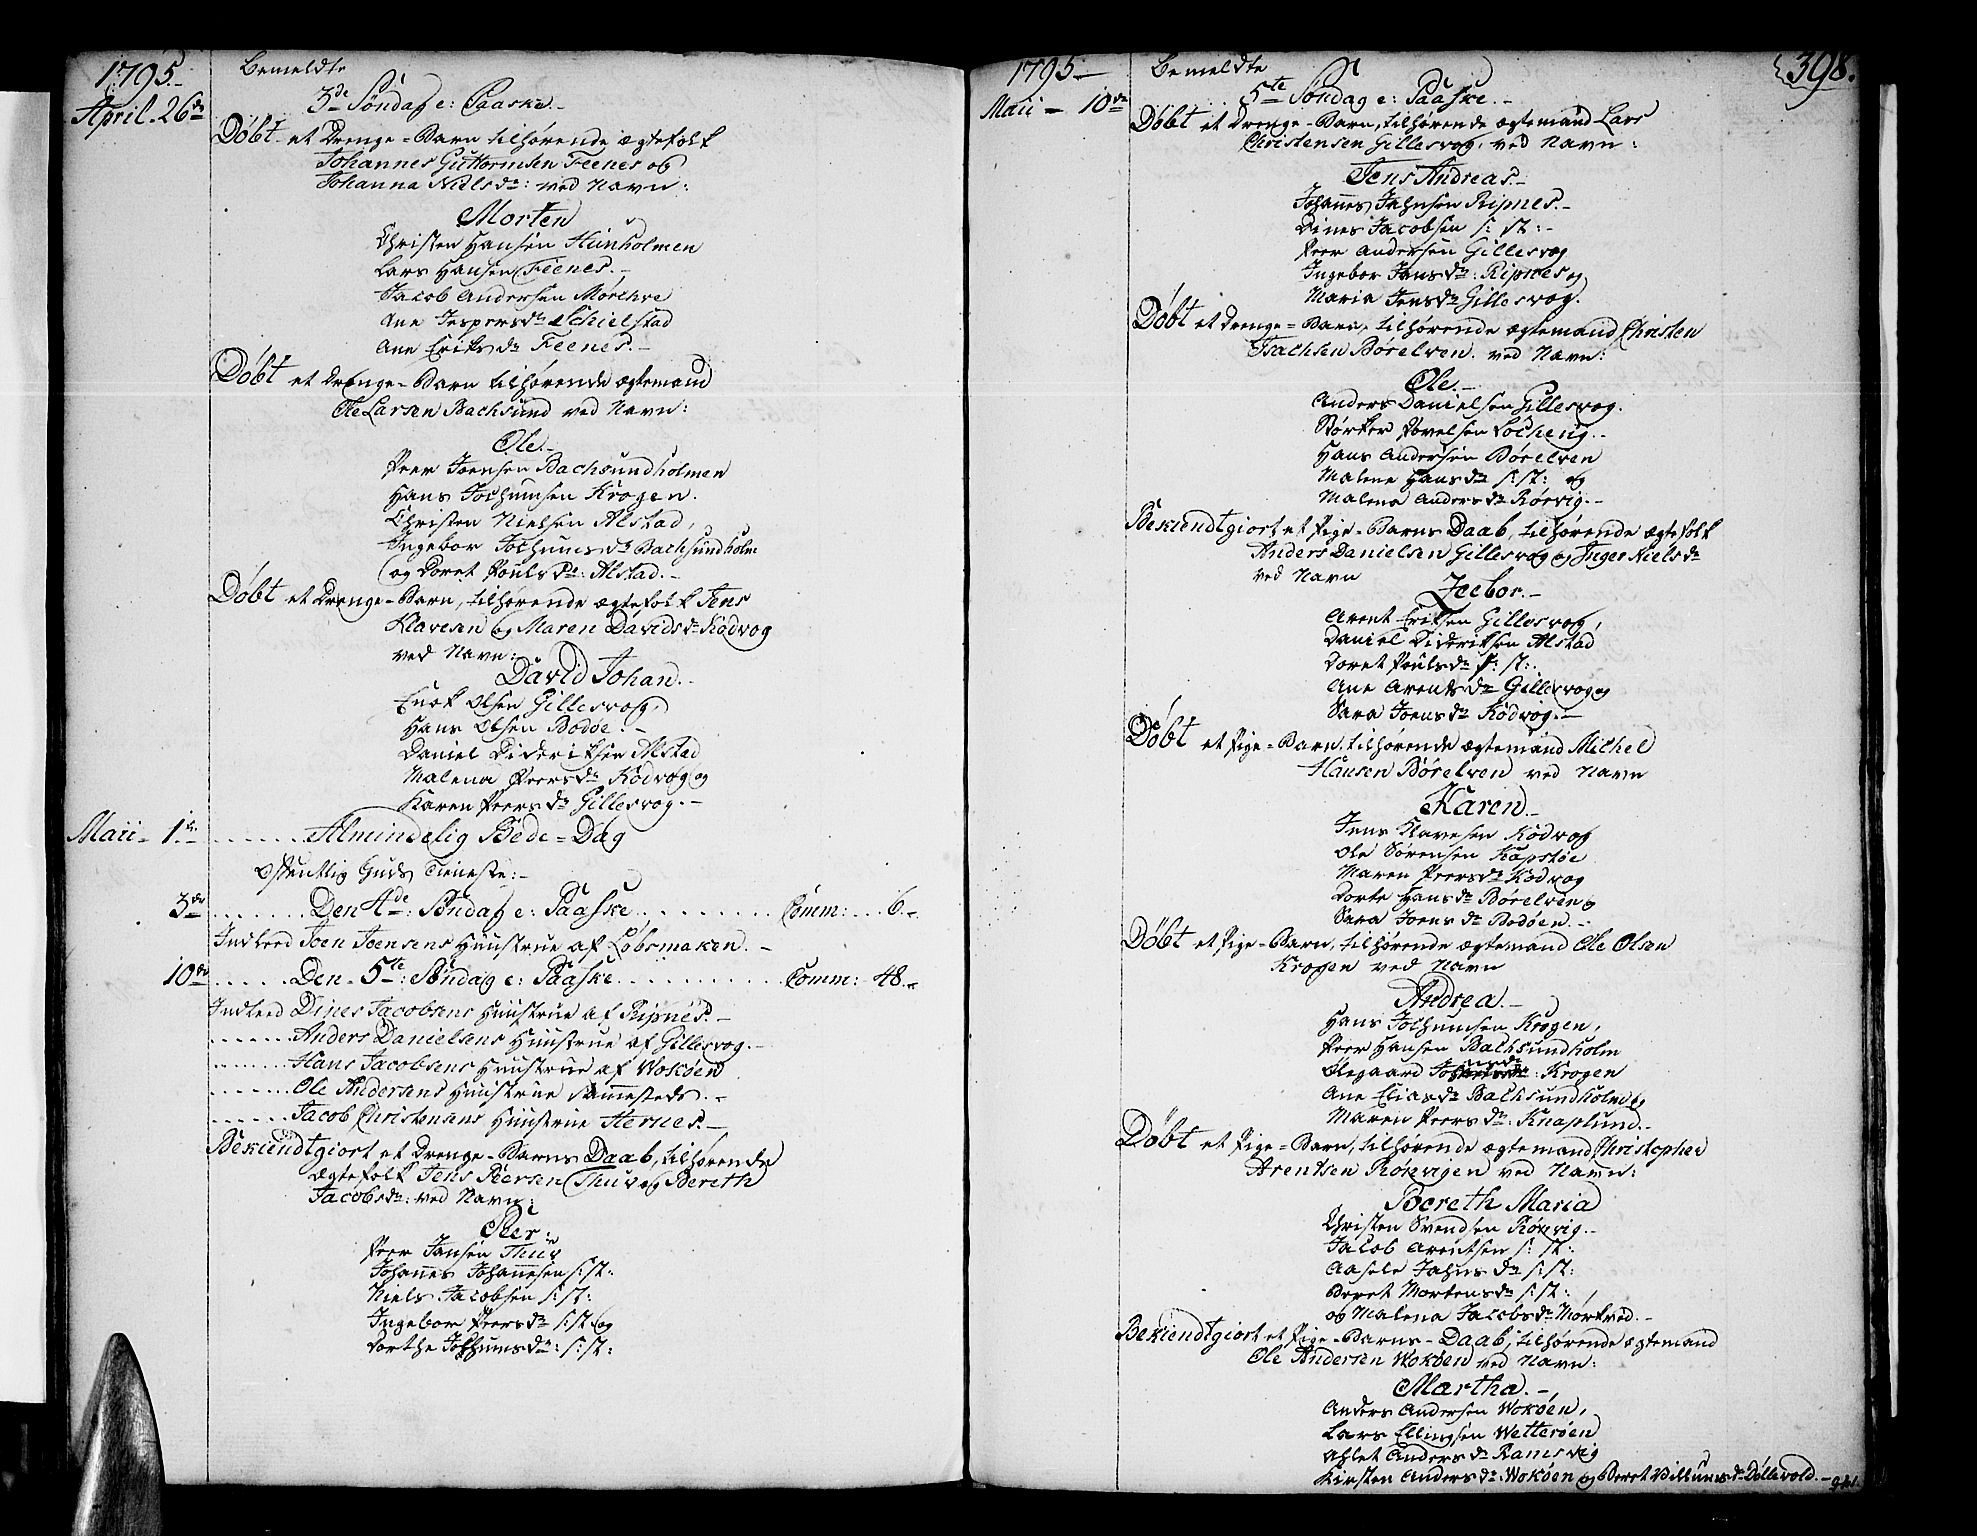 1795.
Bemeldte
April. 26de
3de Søndag e: Paaske.-
Døbt et Drenge-Barn tilhørende ægtefolk
Johannes Guttormsen Feenes og
Johanna Nielsdr: ved Navn:
Morten
Christen Hansen Hunholmen
Lars Hansen Feenes.-
Jacob Andersen Mørchve
Ane Jespersdr Schielstad
Ane Eriksdr Feenes.-
Døbt et Drenge-Barn tilhørende ægtemand
Ole Larsen Bachsund ved Navn:
Ole.-
Peer Joensen Bachsundholmen
Hans Jochumsen Krogen.
Christen Nielsen Alstad,
Ingebor Jochumsdr Bachsundholm
og Doret Poulsdr: Alstad.-
Døbt et Drenge-Barn, tilhørende ægtefolk Jens
Klavesen og Maren Davidsdr Kodvog
ved Navn:
David Johan.-
Enok Olsen Gillesvog,
Hans Olsen Bodøe.-
Daniel Dideriksen Alstad
Malena Peersdr Kodvog og
Karen Peersdr Gillesvog.-
Maii - 1ste
Almindelig Bede-Dag
Offentlig Guds Tieneste:-
3de Den 4de: Søndag e: Paaske Comm: 6.-
Indleed Joen Joensens Huustrue af Løbsmaken.-
10de Den 5te: Søndag e: Paaske Comm: 48.-
Indleed Dines Jacobsens Huustrue af Ripnes.-
Anders Danielsens Huustrue af Gillesvog.-
Hans Jacobsens Huustrue af Wokøen
Ole Andersens Huustrue sammesteds.-
Jacob Christensens Huustrue Hernes.-
Bekiendtgiort et Drenge-Barns Daab, tilhørende
ægtefolk Jens Peersen Thuv og Bereth
Jacobsdr: ved Navn:
Peer:
Peer Jansen Thuv
Johannes Johannesen s: st:
Niels Jacobsen s: st:
Ingebor Peersdr s: st: og
Dorthe Jochumsdr: s: st:
1795.-
Bemeldte
398.
Maii - 10de
5te Søndag e: Paaske.-
Døbt et Drenge-Barn, tilhørende ægtemand Lars
Christensen Gillesvog, ved Navn:
Jens Andreas.-
Johannes Jahnsen Ripnes.-
Dines Jacobsen s: st:-
Peer Andersen Gillesvog
Ingebor Jansdr: Ripnes og
Maria Jensdr Gillesvog.
Døbt et Drenge-Barn, tilhørende ægtemand Christen
Isachsen Børelven. ved Navn:
Ole.-
Anders Danielsen Gillesvog.
Størker Povelsen Løchevig.-
Hans Andersen Børelven
Malene Hansdr s: st: og
Malena Andersdr Rørvig.-
Bekiendtgiort et Pige-Barns Daab, tilhørende ægtefolk
Anders Danielsen Gillesvog og Inger Nielsdr
ved Navn
Zeebor.-
Arent Eriksen Gillesvog,
Daniel Dideriksen Alstad
Doret Poulsdr s: st:.
Ane Arentsdr Gillesvog og
Sara Joensdr Kodvog.-
Døbt et Pige-Barn. tilhørende ægtemand Michel
Hansen Børelven ved Navn
Karen.-
Jens Klavesen Kodvog
Ole Sørensen Kapstøe
Maren Peersdr Kodvog
Dorte Hansdr Børelven og
Sara Joensdr Bodøen.-
Døbt et Pige-Barn, tilhørende ægtemand Ole Olsen
Krogen ved Navn
Andrea.-
Hans Jochumsen Krogen,
Peer Hansen Bachsundholm
Ølegaard Krogen
Ane Eliasdr Bachsundholm og
Maren Peersdr: Knaplund.-
Døbt et Pige-Barn, tilhørende ægtemand Christopher
Arentsen Rønvigen ved Navn:
Bereth Maria
Christen Svendsen Rønvig.-
Jacob Arentsen s: st:
Aasele Jahnsdr s: st:
Beret Mortensdr s: st:
og Malena Jacobsdr Mørkved.-
Bekiendtgiort et Pige-Barns-Daab, tilhørende ægtemand
Ole Andersen Wokøen ved Navn:
Martha.-
Anders Andersen Wokøen,
Lars Ellingsen Wetterøen
Ahlet Andersdr Ramsvig
Kirsten Andersdr: Wokøen og Beret Villumsdr Døllevold.-